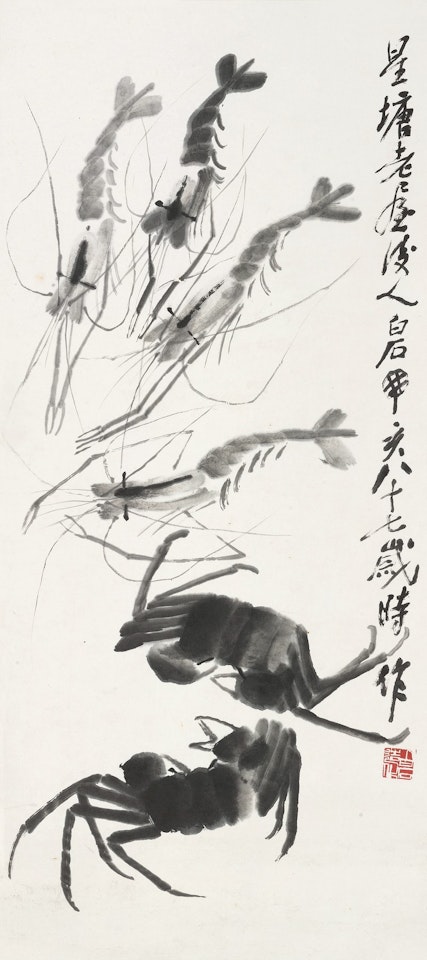 星塘老屋後人白石甲亥八十七歲時作